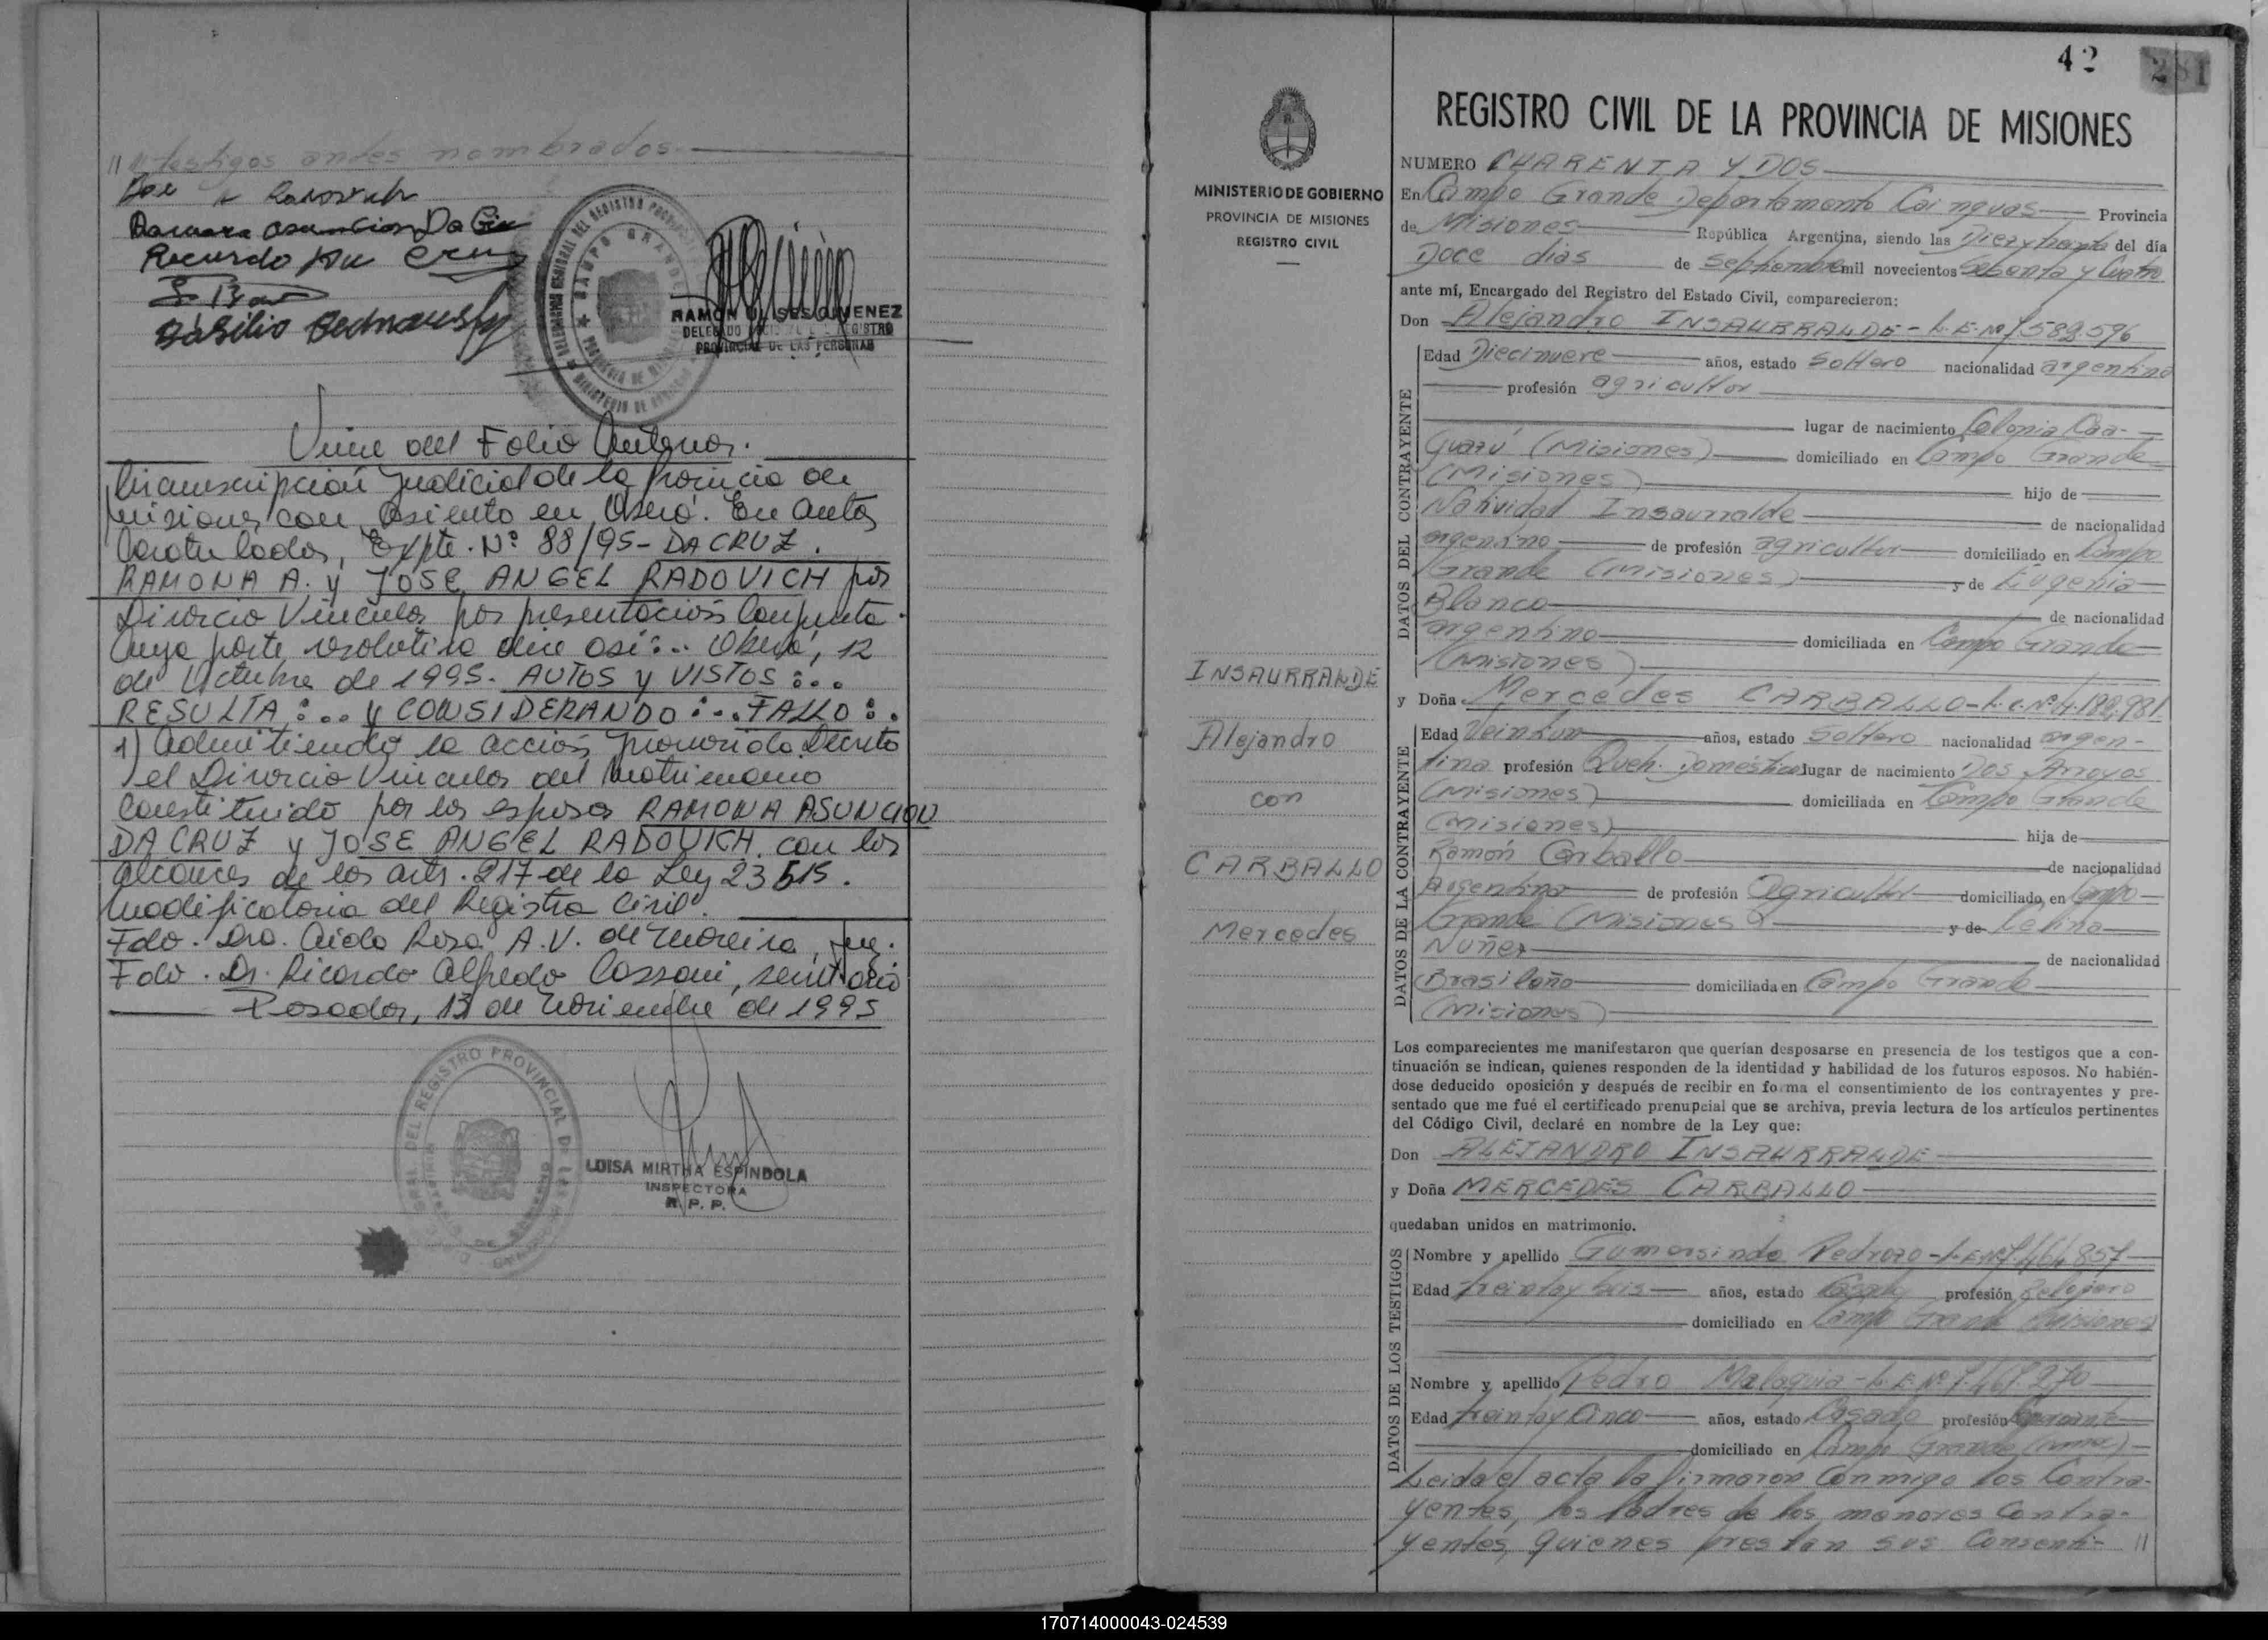 // testigos antes nombrados
Jose A Radovich
Ramona Asuncion Da Cruz
Basilio
RAMON ULISES GIMENEZ
DELEGADO REGISTRO
PROVINCIAL DE LAS PERSONAS
Viene del Folio Anterior.
Circunscripción Judicial de la Provincia de
Misiones con Asiento en Oberá. En Autos
Caratulados, Expte. Nº 88/95- DA CRUZ.
RAMONA A. y JOSE ANGEL RADOVICH por
Divorcio Vincular por presentación Conjunta.
Cuya parte resolutiva dice así:.. Oberá, 12
de Octubre de 1995. AUTOS y VISTOS:..
RESULTA:.. y CONSIDERANDO:..FALLO:.
1) Admitiendo la acción promovida Decreto
el Divorcio Vincular del Matrimonio
Constituido por los esposos RAMONA ASUNCION
DA CRUZ y JOSE ANGEL RADOVICH, con los
alcances de los arts. 217 de la Ley 23515.
modificatoria del Registro Civil.
Fdo. Dra. Aida Rosa A.V. de Moreira, Juez.
Fdo. Dr. Ricardo Alfredo Cassoni, secretario
Posadas, 13 de Noviembre de 1995
DEL REGISTRO PROVINCIAL DE LAS PERSONAS
LUISA MIRTHA ESPINDOLA
INSPECTORA
R. P. P.
42
281
MINISTERIO DE GOBIERNO
PROVINCIA DE MISIONES
REGISTRO CIVIL
INSAURRALDE
Alejandro
con
CARBALLO
Mercedes
REGISTRO CIVIL DE LA PROVINCIA DE MISIONES
NUMERO CUARENTA Y DOS
En Campo Grande Departamento Cainguas Provincia
de Misiones República Argentina, siendo las Diez y treinta del día
Doce dias de Septiembre mil novecientos Setenta y Cuatro
ante mí, Encargado del Registro del Estado Civil, comparecieron:
Don Alejandro INSAURRALDE - L.E.Nº 7.589.596
DATOS DEL CONTRAYENTE
Edad Diecinueve años, estado Soltero nacionalidad argentino
profesión agricultor
lugar de nacimiento Colonia Caa-
Guazú (Misiones) domiciliado en Campo Grande
(Misiones) hijo de
Natividad Insaurralde de nacionalidad
argentino de profesión agricultor domiciliado en Campo
Grande (Misiones) y de Eugenia
Blanco de nacionalidad
argentino domiciliada en Campo Grande
(Misiones)
y Doña Mercedes CARBALLO - L.C.Nº 4.182.981
DATOS DE LA CONTRAYENTE
Edad Veintiun años, estado Soltera nacionalidad argen-
tina profesión Queh. Domésticos lugar de nacimiento Dos Arroyos
(Misiones) domiciliada en Campo Grande
(Misiones) hija de
Ramón Carballo de nacionalidad
Argentino de profesión agricultor domiciliado en Campo
Grande (Misiones) y de Celina
Nuñez de nacionalidad
Brasileña domiciliada en Campo Grande
(Misiones)
Los comparecientes me manifestaron que querían desposarse en presencia de los testigos que a con-
tinuación se indican, quienes responden de la identidad y habilidad de los futuros esposos. No habién-
dose deducido oposición y después de recibir en forma el consentimiento de los contrayentes y pre-
sentado que me fué el certificado prenupcial que se archiva, previa lectura de los artículos pertinentes
del Código Civil, declaré en nombre de la Ley que:
Don ALEJANDRO INSAURRALDE
y Doña MERCEDES CARBALLO
quedaban unidos en matrimonio.
DATOS DE LOS TESTIGOS
Nombre y apellido Gumersindo Pedrozo - L.E.Nº 7.464.857
Edad treinta y seis años, estado Casado profesión Relojero
domiciliado en Campo Grande (Misiones)
Nombre y apellido Pedro Malaguia - L.E.Nº
Edad treinta y Cinco años, estado Casado profesión
domiciliado en Campo Grande
Leida el acta la firmaron Conmigo los Contra-
yentes, los Padres de los menores Contra-
yentes, quienes prestan sus Consenti- //
170714000043-024539